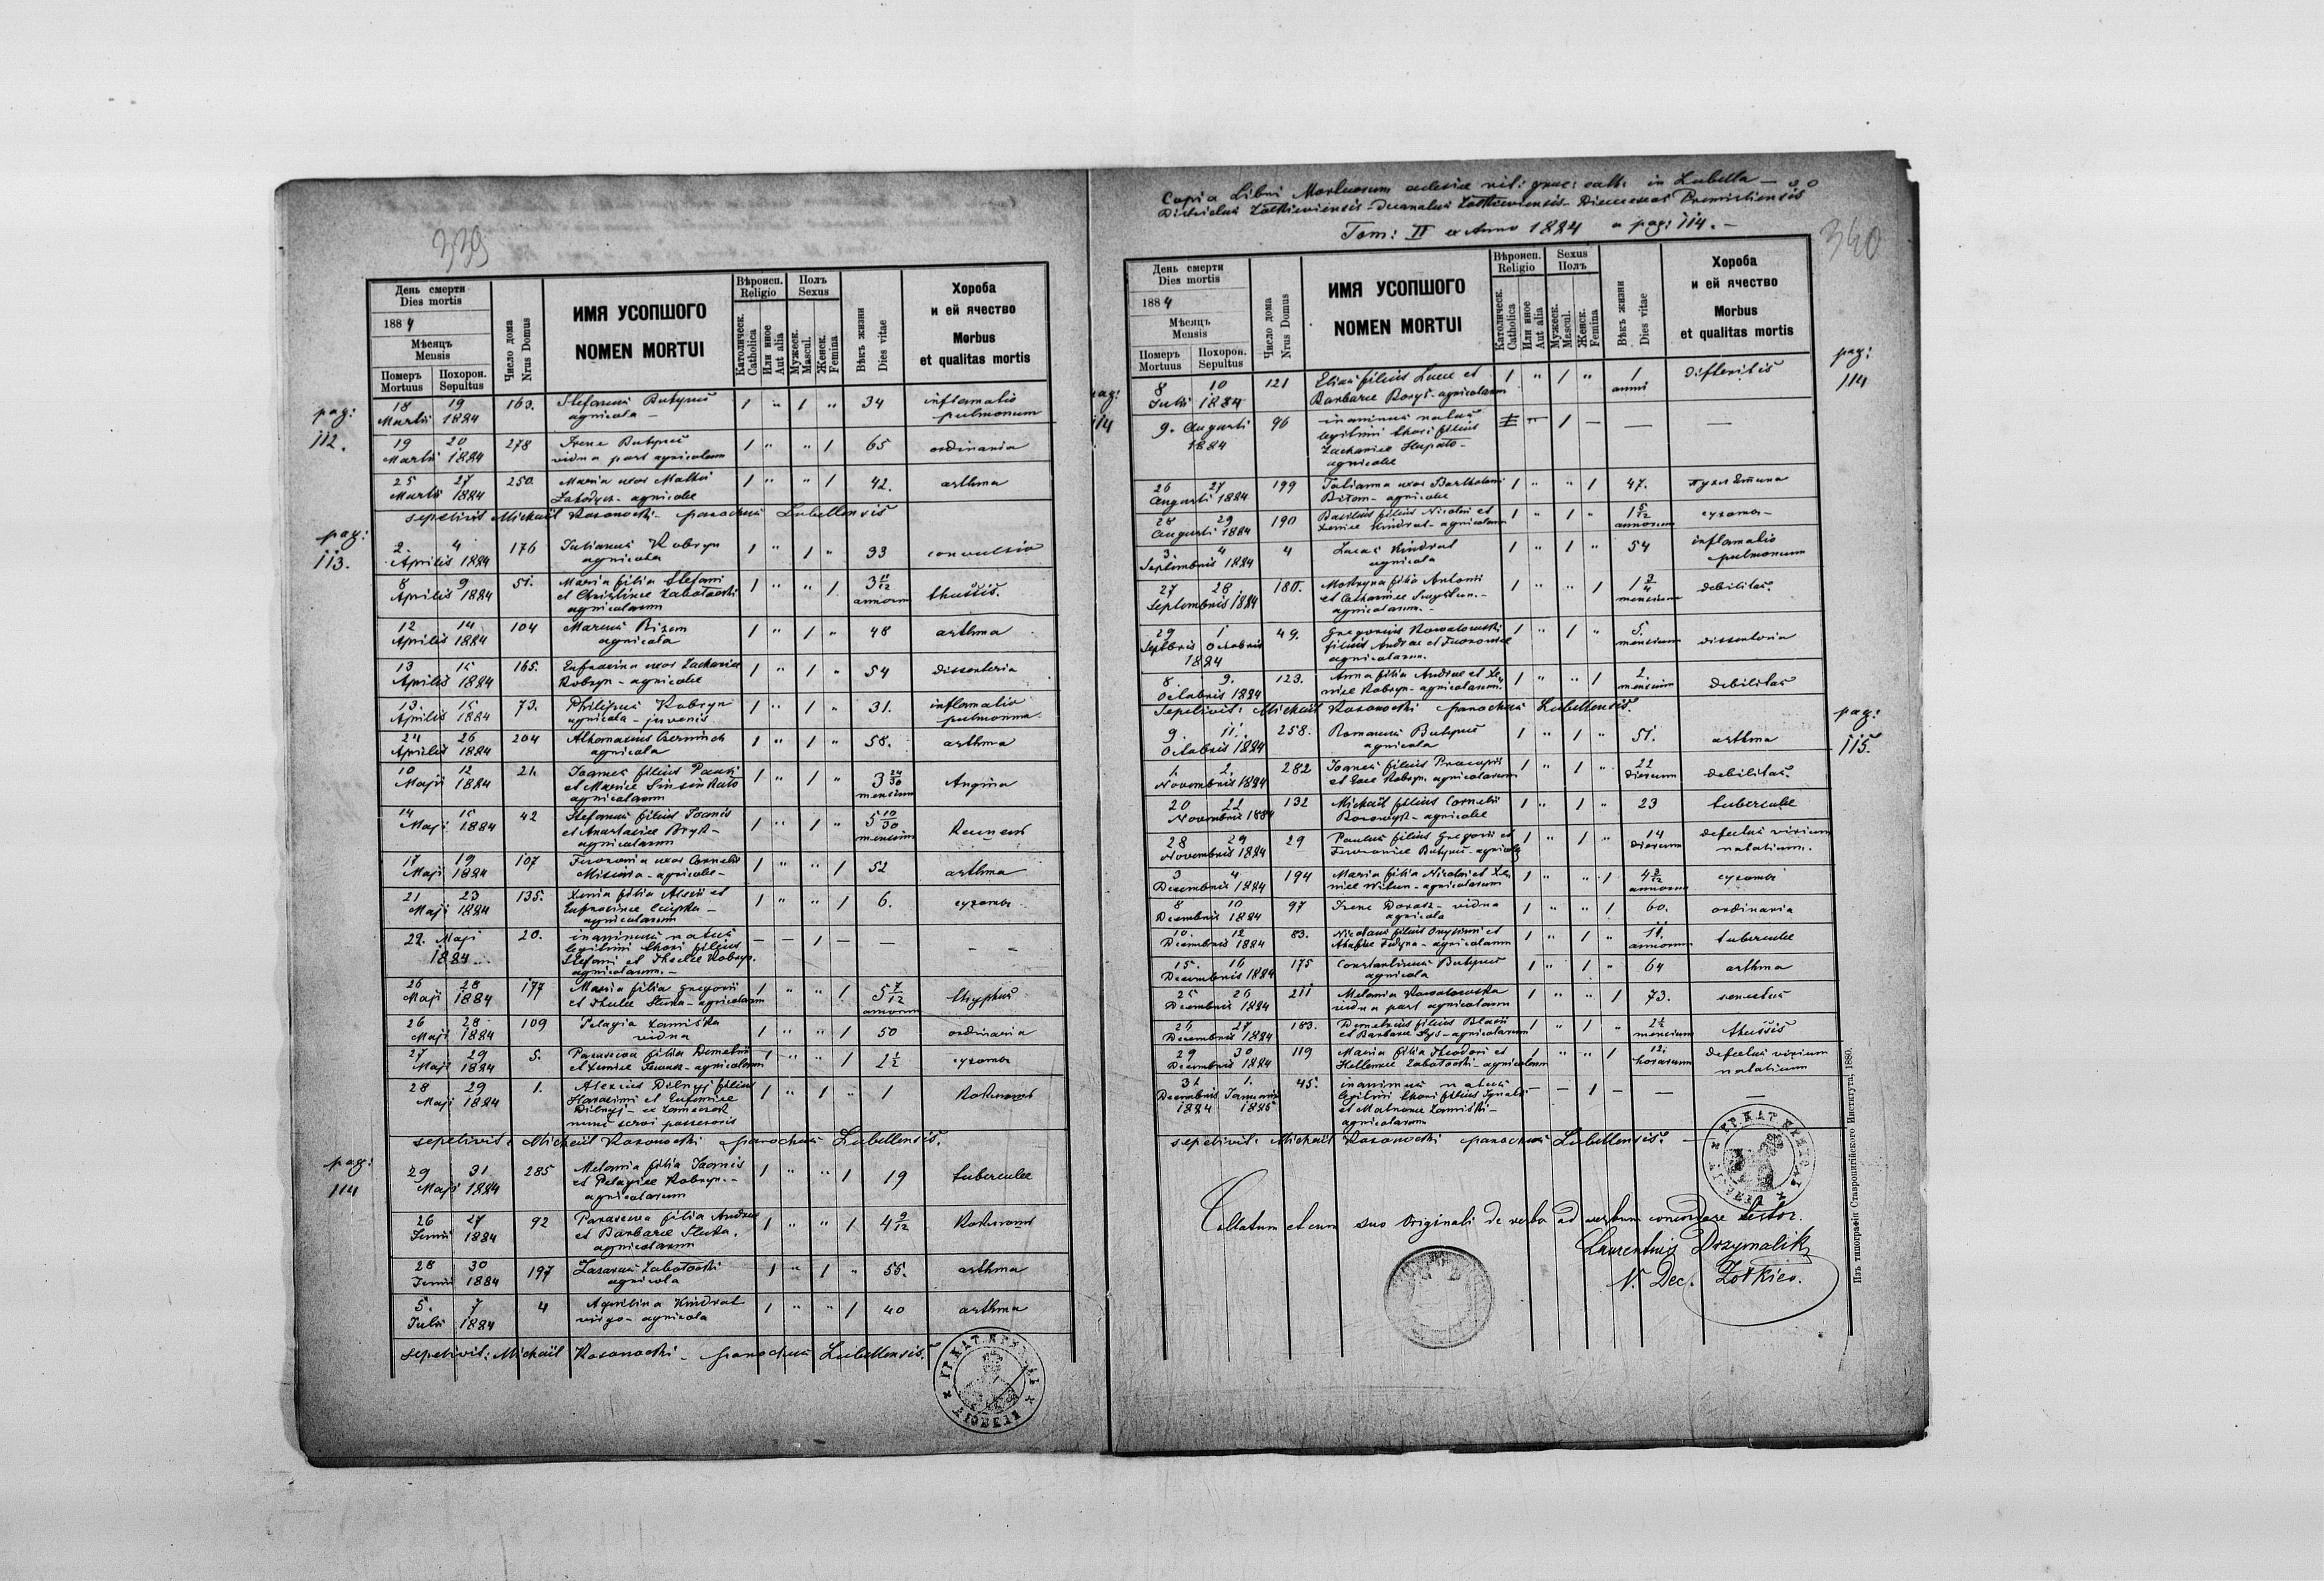 339
День смерти
Dies mortis
1884
Мѣсяцъ
Mensis
Померъ
Mortuus
Похорон.
Sepultus
Число дома
Nrus Domus
ИМЯ УСОПШОГО
NOMEN MORTUI
Вѣроисп.
Religio
Католическ.
Catholica
Или иное
Aut alia
Полъ
Sexus
Мужеск.
Mascul.
Женск.
Femina
Вѣкъ жизни
Dies vitae
Хороба
и ей ячество
Morbus
et qualitas mortis
pag: 112.
18 19 163. Stefanus Butryn 1 " 1 " 34 inflamatio
Martii 1884 agricola - pulmonum
19 20 278 Irene Butryn 1 " " 1 65 ordinaria
Martii 1884 vidua post agricolam
25 27 250. Maria uxor Mathei 1 " " 1 42. asthma
Martii 1884 agricolae
sepelivit Michail Kosonocki - parochus Lubellensis
pag: 113.
2. 4 176 Julianus Kobryn 1 " 1 " 33 convulsio
Aprilis 1884 agricola
8 9 51. Maria filia Stefani 1 " " 1 3 11/12 thussis.
Aprilis 1884 et Christinae Zabotocki annorum
agricolarum
12 14 104 Marcus 1 " 1 " 48 asthma
Aprilis 1884 agricola
13 15 165. Eufrosina uxor Zachariae 1 " 1 " 54 dissenteria
Aprilis 1884 Kobryn - agricolae
13. 15 73. Philippus Kobryn 1 " 1 " 31. inflamatio
Aprilis 1884 agricola - juvenis pulmonum
24 26 204 Athanasius Czerniuch 1 " 1 " 58. asthma
Aprilis 1884 agricola
10 12 21. Joannes filius Pauli 1 " 1 " 3 24/30 Angina
Maji 1884 et Mariae mensium
agricolarum
14 15 42 Stefanus filius Joannis 1 " 1 " 5 10/30
Maji 1884 et Anastasiae Bryk - mensium
agricolarum
17 19 107 Fevronia uxor Cornelii 1 " " 1 52 asthma
Maji 1884 agricolae -
21 23 135. Xenia filia Alexii et 1 " " 1 6. сухоты
Maji 1884 Eufrosinae
agricolarum
22. Maji 20. inanimus natus — — 1 — — —
1884 legitimi thori filius
Stefani et Theclae Kobryn.
agricolarum. -
26 28 177 Maria filia Gregorii 1 " " 1 5 7/12 thyphus
Maji 1884 et Theclae - agricolarum annorum
26 28 109 Pelagia 1 " " 1 50 ordinaria
Maji 1884 vidua
27 29 5. Parascewa filia Demetrii 1 " " 1 2 1/2 сухоты
Maji 1884 et Xeniae - agricolarum
28 29 1. Alexius Dilnyj filius 1 " 1 " 1
Maji 1884 Harasimi et Eufemiae
Dilnyj -
sepelivit: Michail Kosonocki parochus Lubellensis.
pag: 114
29 31 285 Melania filia Joannis 1 " " 1 19 tuberculae
Maji 1884 et Pelagiae Kobryn. -
agricolarum
26 27 92 Parascewa filia Andreae 1 " " 1 4 9/12
Junii 1884 et Barbarae
agricolarum
28 30 197 Lazarus Zabotocki 1 " 1 " 55. asthma
Junii 1884 agricola
5. 7 4 Aquilina Kindrat 1 " " 1 40 asthma
Julii 1884 virgo - agricola
sepelivit: Michail Kosonocki - parochus Lubellensis.
Copia Libri Mortuorum eclesiae rit: graec: cath: in Lubella —
Districtus Zolkieviensis - Decanatus Zolkieviensis - Dioeceseos Premisliensis
Tom: II ex Anno 1884 a pag: 114. -
340
День смерти
Dies mortis
1884
Мѣсяцъ
Mensis
Померъ
Mortuus
Похорон.
Sepultus
Число дома
Nrus Domus
ИМЯ УСОПШОГО
NOMEN MORTUI
Вѣроисп.
Religio
Католическ.
Catholica
Или иное
Aut alia
Sexus
Полъ
Мужеск.
Mascul.
Женск.
Femina
Вѣкъ жизни
Dies vitae
Хороба
и ей ячество
Morbus
et qualitas mortis
pag: 114
8 10 121 Elias filius Lucae et 1 " 1 " 1 difteritis
Julii 1884 Barbarae - agricolarum anni
9. Augusti 96 inanimus natus 1 — — —
1884 legitimi thori filius
Zachariae
agricolae
26 27 199 Tatianna uxor Bartholomei 1 " " 1 47.
Augusti 1884 agricolae
28 29 190 Basilius filius Nicolai et 1 " 1 " 1 5/12 сухоты
Augusti 1884 Xeniae Kindrat - agricolarum annorum
3. 4 4 Lucas Kindrat 1 " 1 " 54 inflamatio
Septembris 1884 agricola pulmonum
27 28 180. filia Antonii 1 " " 1 1 3/4 debilitas.
Septembris 1884 et Catharinae mensium
agricolarum. -
29 1 49. Gregorius Kowalowski 1 " 1 " 5. dissenteria
Septbris Octobris filius Andreae et Fevroniae mensium
1884 agricolarum.
8. 9. 123. Anna filia Andreae et Xe- 1 " " 1 2. debilitas
Octobris 1884 niae Kobryn - agricolarum. mensium
Sepelivit: Michail Kosonocki parochus Lubellensis.
pag: 115.
9. 11. 258. Romanus Butryn 1 " 1 " 51. asthma
Octobris 1884 agricola
1. 2. 282 Joannes filius Procopii 1 " 1 " 22 debilitas.
Novembris 1884 et Evae Kobryn. agricolarum dierum
20 22 132 Michail filius Cornelii 1 " 1 " 23 tuberculae
Novembris 1884 agricolae
28 29 29 Paulus filius Gregorii et 1 " 1 " 14 defectus virium
Novembris 1884 Fevroniae Butryn - agricolae dierum natalium.
3 4 194 Maria filia Nicolai et Xe- 1 " " 1 4 2/12 сухоты
Decembris 1884 niae - agricolarum annorum
8 10 97 Irene - vidua 1 " " 1 60. ordinaria
Decembris 1884 agricola
10. 12 83. Nicolaus filius Onysimi et 1 " 1 " 11. tuberculae
Decembris 1884 Fedyna - agricolarum annorum
15. 16 175 Constantinus Butryn 1 " 1 " 64 asthma
Decembris 1884 agricola
25 26 211 Melania Kowalowska 1 " " 1 73. senectus
Decembris 1884 vidua post agricolam
25 27 183. Demetrius filius Blasii 1 " 1 " 2 1/2 thussis
Decembris 1884 et Barbarae - agricolarum mensium
29 30 119 Maria filia Theodori et 1 " " 1 12. defectus virium
Decembris 1884 Hellenae Zabotocki - agricolarum horarum natalium
31 1. 45. inanimus natus — — 1 — — —
Decembris Januarii legitimi thori filius Ignatii
1884 1885 et Matronae
agricolarum
sepelivit: Michail Kosonocki parochus Lubellensis. -
Collatum et cum suo Originali de verbo ad verbum concordare testor.
Laurentius Drzymalik
V. Dec. Zołkiew.
Изъ типографіи Ставропигійского Института, 1880.